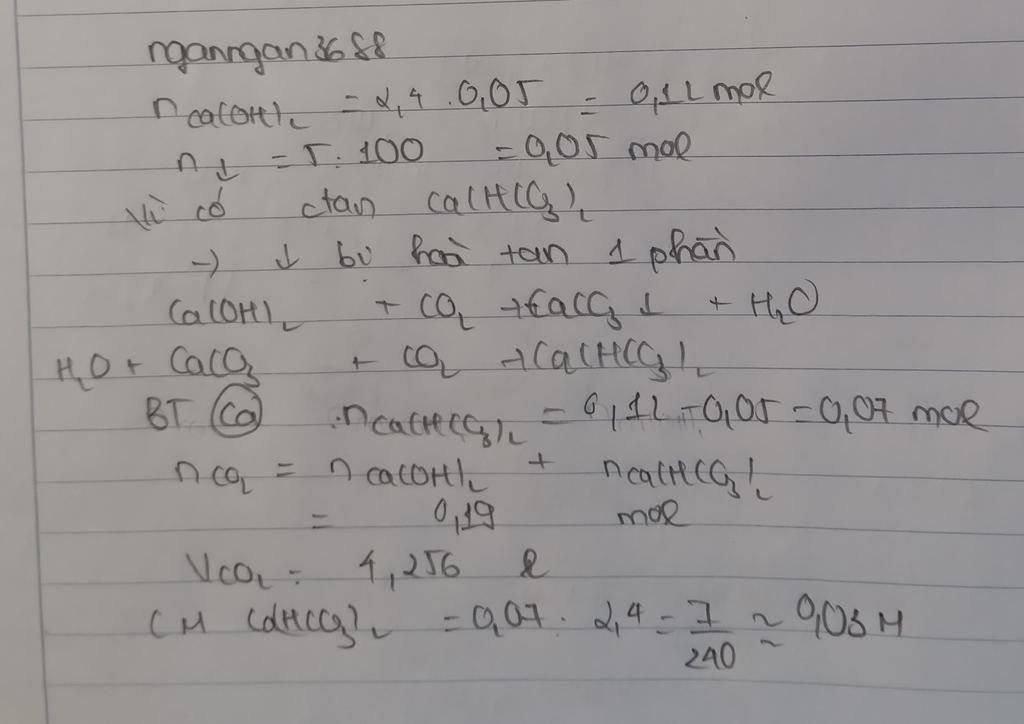 nganngan3688
n Ca(OH)₂ = 2,4 . 0,05 = 0,12 mol
n↓ = 5 : 100 = 0,05 mol
Vì có ctan Ca(HCO₃)₂
→ ↓ bị hoà tan 1 phần
Ca(OH)₂ + CO₂ → CaCO₃ ↓ + H₂O
H₂O + CaCO₃ + CO₂ → Ca(HCO₃)₂
BT Ca n Ca(HCO₃)₂ = 0,12 - 0,05 = 0,07 mol
n CO₂ = n Ca(OH)₂ + n Ca(HCO₃)₂
= 0,19 mol
VCO₂ = 4,256 l
CM Ca(HCO₃)₂ = 0,07 : 2,4 = 7/240 ≈ 0,03 M